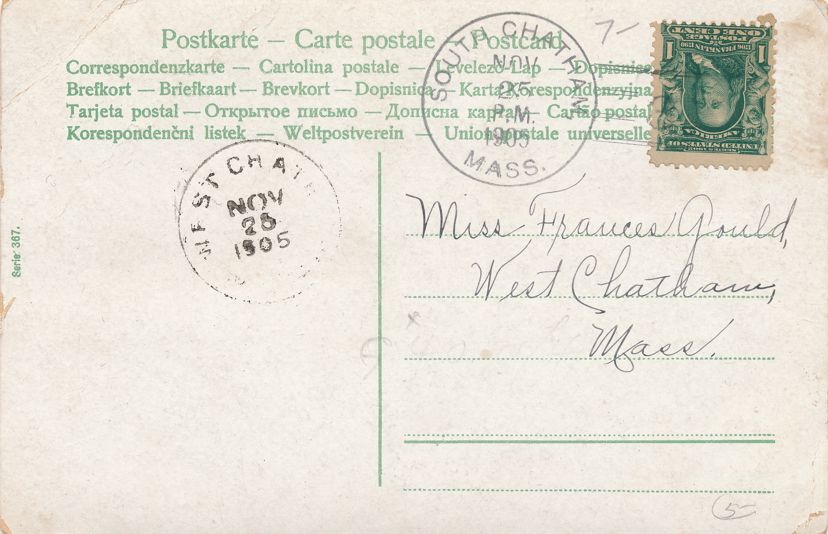 Postkarte — Carte postale — Postcard
Correspondenzkarte — Cartolina postale — Levelezö-Lap — Dopisnise
Brefkort — Briefkaart — Brevkort — Dopisnica — Karta Korespondenzyjna
Tarjeta postal — Открытое письмо — Дописна карта — Cartão postal
Korespondenční listek — Weltpostverein — Union postale universelle
SOUTH CHATHAM
NOV
25
P.M.
1905
MASS.
7-
POSTAGE
ONE CENT
1 1
FRANKLIN
AMERICA
UNITED STATES OF
SERIES 1902
WEST CHATH
NOV
1905
Serie 367.
Miss Frances Gould,
West Chatham,
Mass.
5-